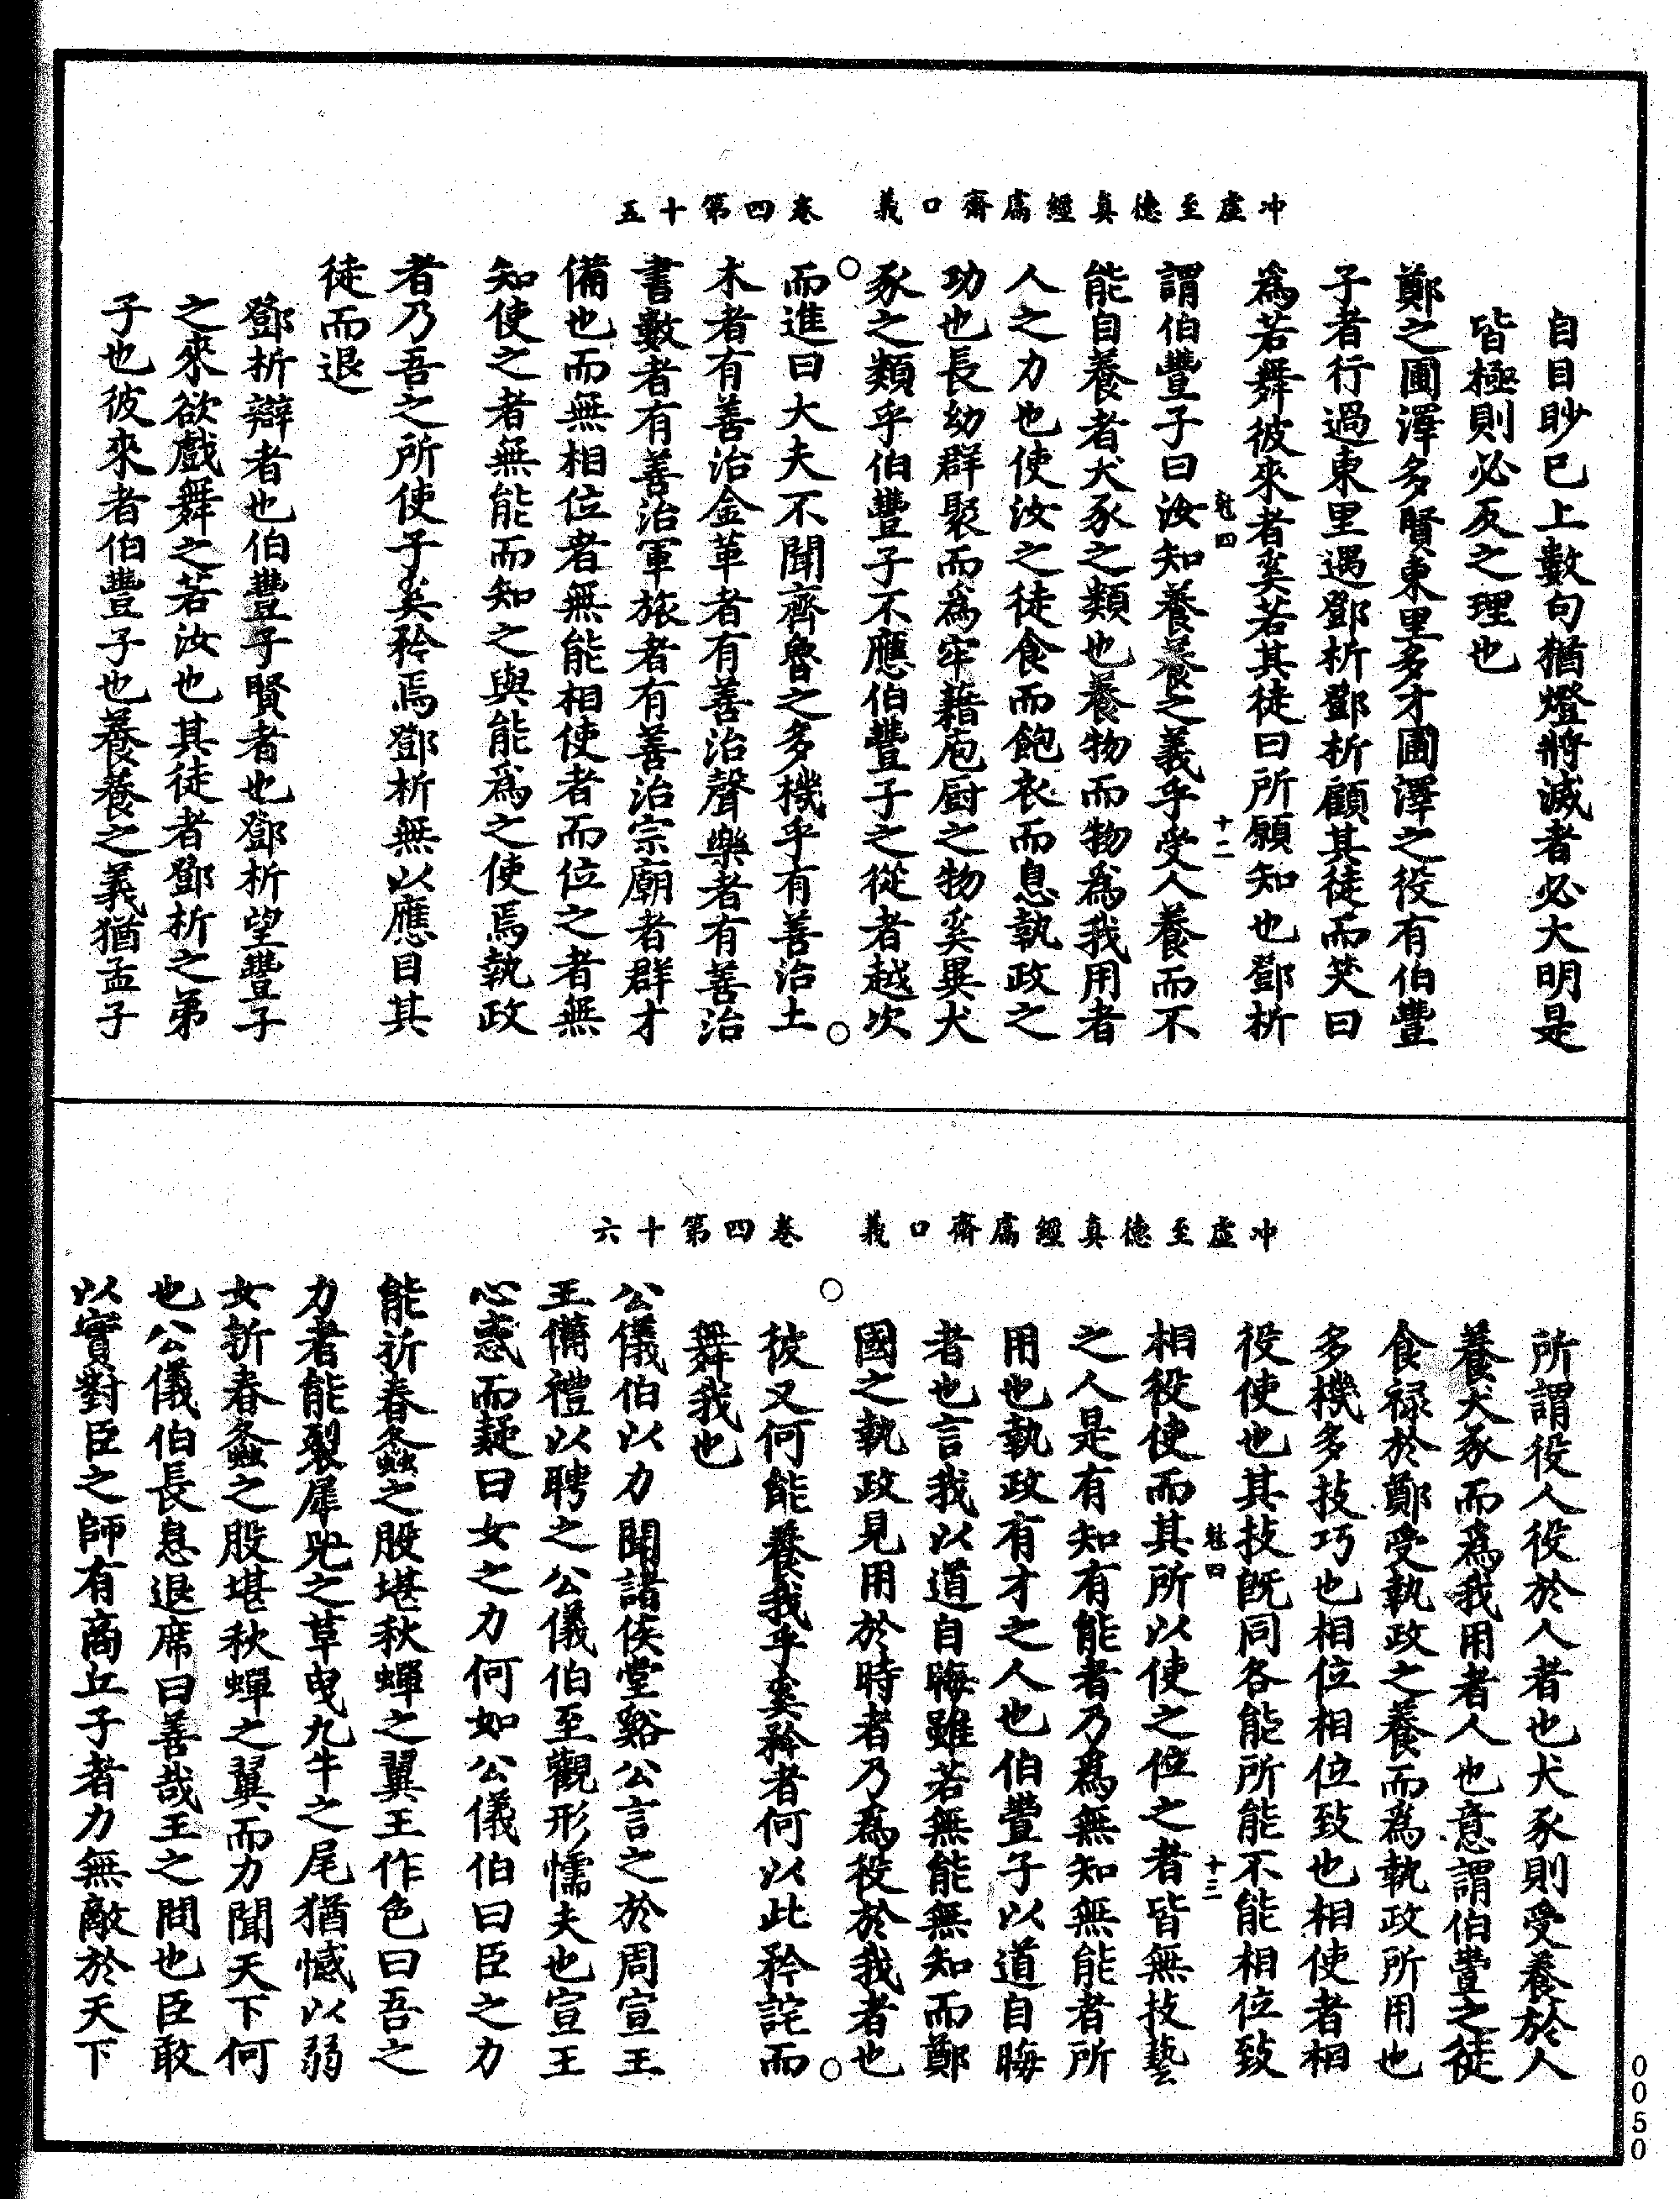 冲虛至德真經鬳齋口義　卷四第十五
自目眇已上數句猶燈將滅者必大明是
皆極則必反之理也
鄭之圃澤多賢東里多才圃澤之役有伯豐
子者行過東里遇鄧析鄧析顧其徒而笑曰
為若舞彼來者奚若其徒曰所願知也鄧析
魁四　十二
謂伯豐子曰汝知養養之義乎受人養而不
能自養者犬豕之類也養物而物為我用者
人之力也使汝之徒食而飽衣而息執政之
功也長幼群聚而為牢藉庖厨之物奚異犬
豕之類乎伯豐子不應伯豐子之從者越次
而進曰大夫不聞齊魯之多機乎有善治土
木者有善治金革者有善治聲樂者有善治
書數者有善治軍旅者有善治宗廟者群才
備也而無相位者無能相使者而位之者無
知使之者無能而知之與能為之使焉執政
者乃吾之所使子奚矜焉鄧析無以應目其
徒而退
鄧析辯者也伯豐子賢者也鄧析望豐子
之來欲戲舞之若汝也其徒者鄧析之弟
子也彼來者伯豐子也養養之義猶孟子
冲虛至德真經鬳齋口義　卷四第十六
所謂役人役於人者也犬豕則受養於人
養犬豕而為我用者人也意謂伯豐之徒
食祿於鄭受執政之養而為執政所用也
多機多技巧也相位相位致也相使者相
役使也其技既同各能所能不能相位致
魁四　十三
相役使而其所以使之位之者皆無技藝
之人是有知有能者乃為無知無能者所
用也執政有才之人也伯豐子以道自晦
者也言我以道自晦雖若無能無知而鄭
國之執政見用於時者乃為役於我者也
彼又何能養我乎奚矜者何以此矜詫而
舞我也
公儀伯以力聞諸侯堂谿公言之於周宣王
王備禮以聘之公儀伯至觀形懦夫也宣王
心惑而疑曰女之力何如公儀伯曰臣之力
能折春螽之股堪秋蟬之翼王作色曰吾之
力者能裂犀兕之革曳九牛之尾猶憾以弱
女折春螽之股堪秋蟬之翼而力聞天下何
也公儀伯長息退席曰善哉王之問也臣敢
以實對臣之師有商丘子者力無敵於天下
0050